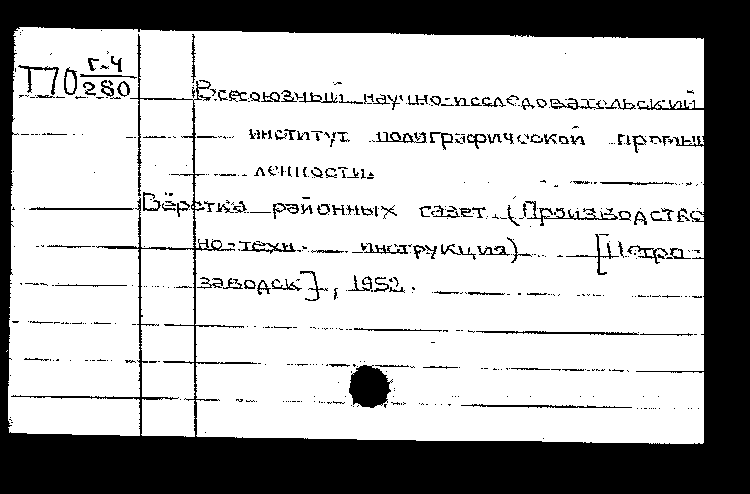 Т70 Г-4
280
Всесоюзный научно-исследовательский
институт полиграфической промыш
ленности.
Вёрстка районных газет. (Производстве
но-техн. инструкция) [Петро-
заводск], 1952.